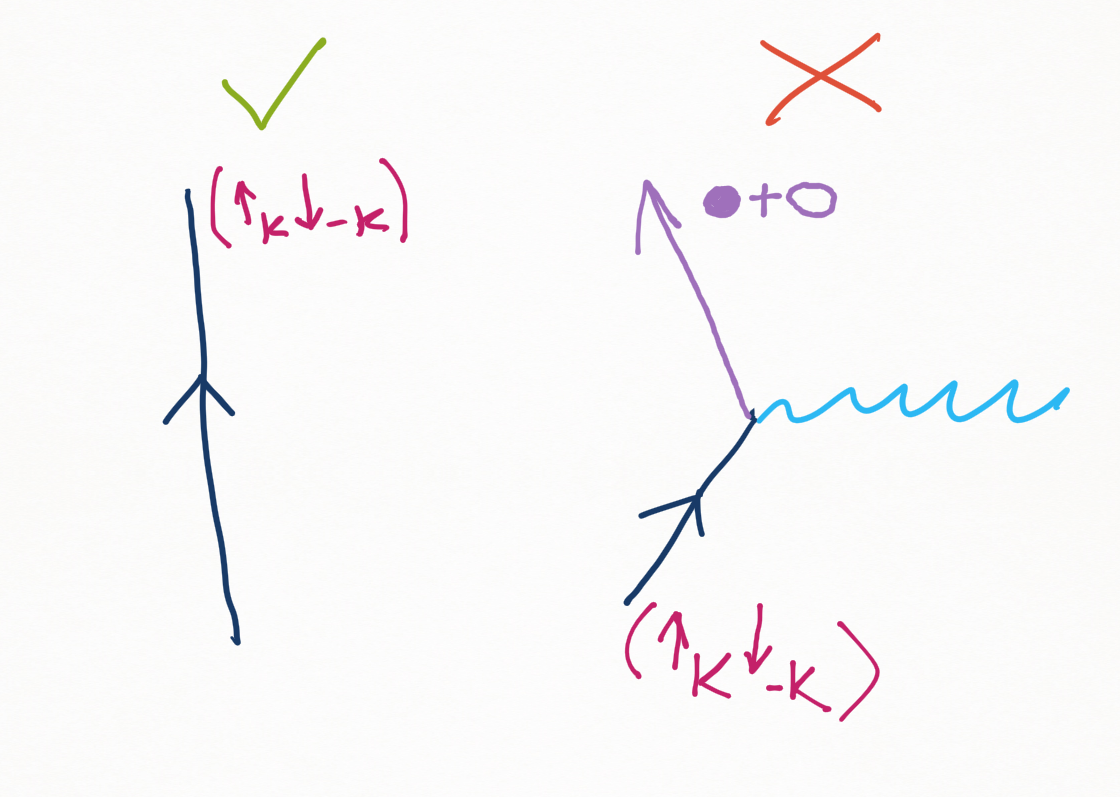 (↑K↓-K)
●+○
(↑K↓-K)